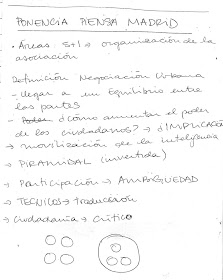 PONENCIA PIENSA MADRID
• Áreas 5+1 → organización de la
asociación
Definición Negociación Urbana
- llegar a un Equilibrio entre
las partes
- Poder ¿Cómo aumentar el poder
de los ciudadanos? → ¿IMPLICACIÓN
→ movilización de la inteligencia
→ PIRAMIDAL (invertida)
→ Participación → AMBIGÜEDAD
→ TECNICOS → traductor
→ Ciudadanía → Crítico